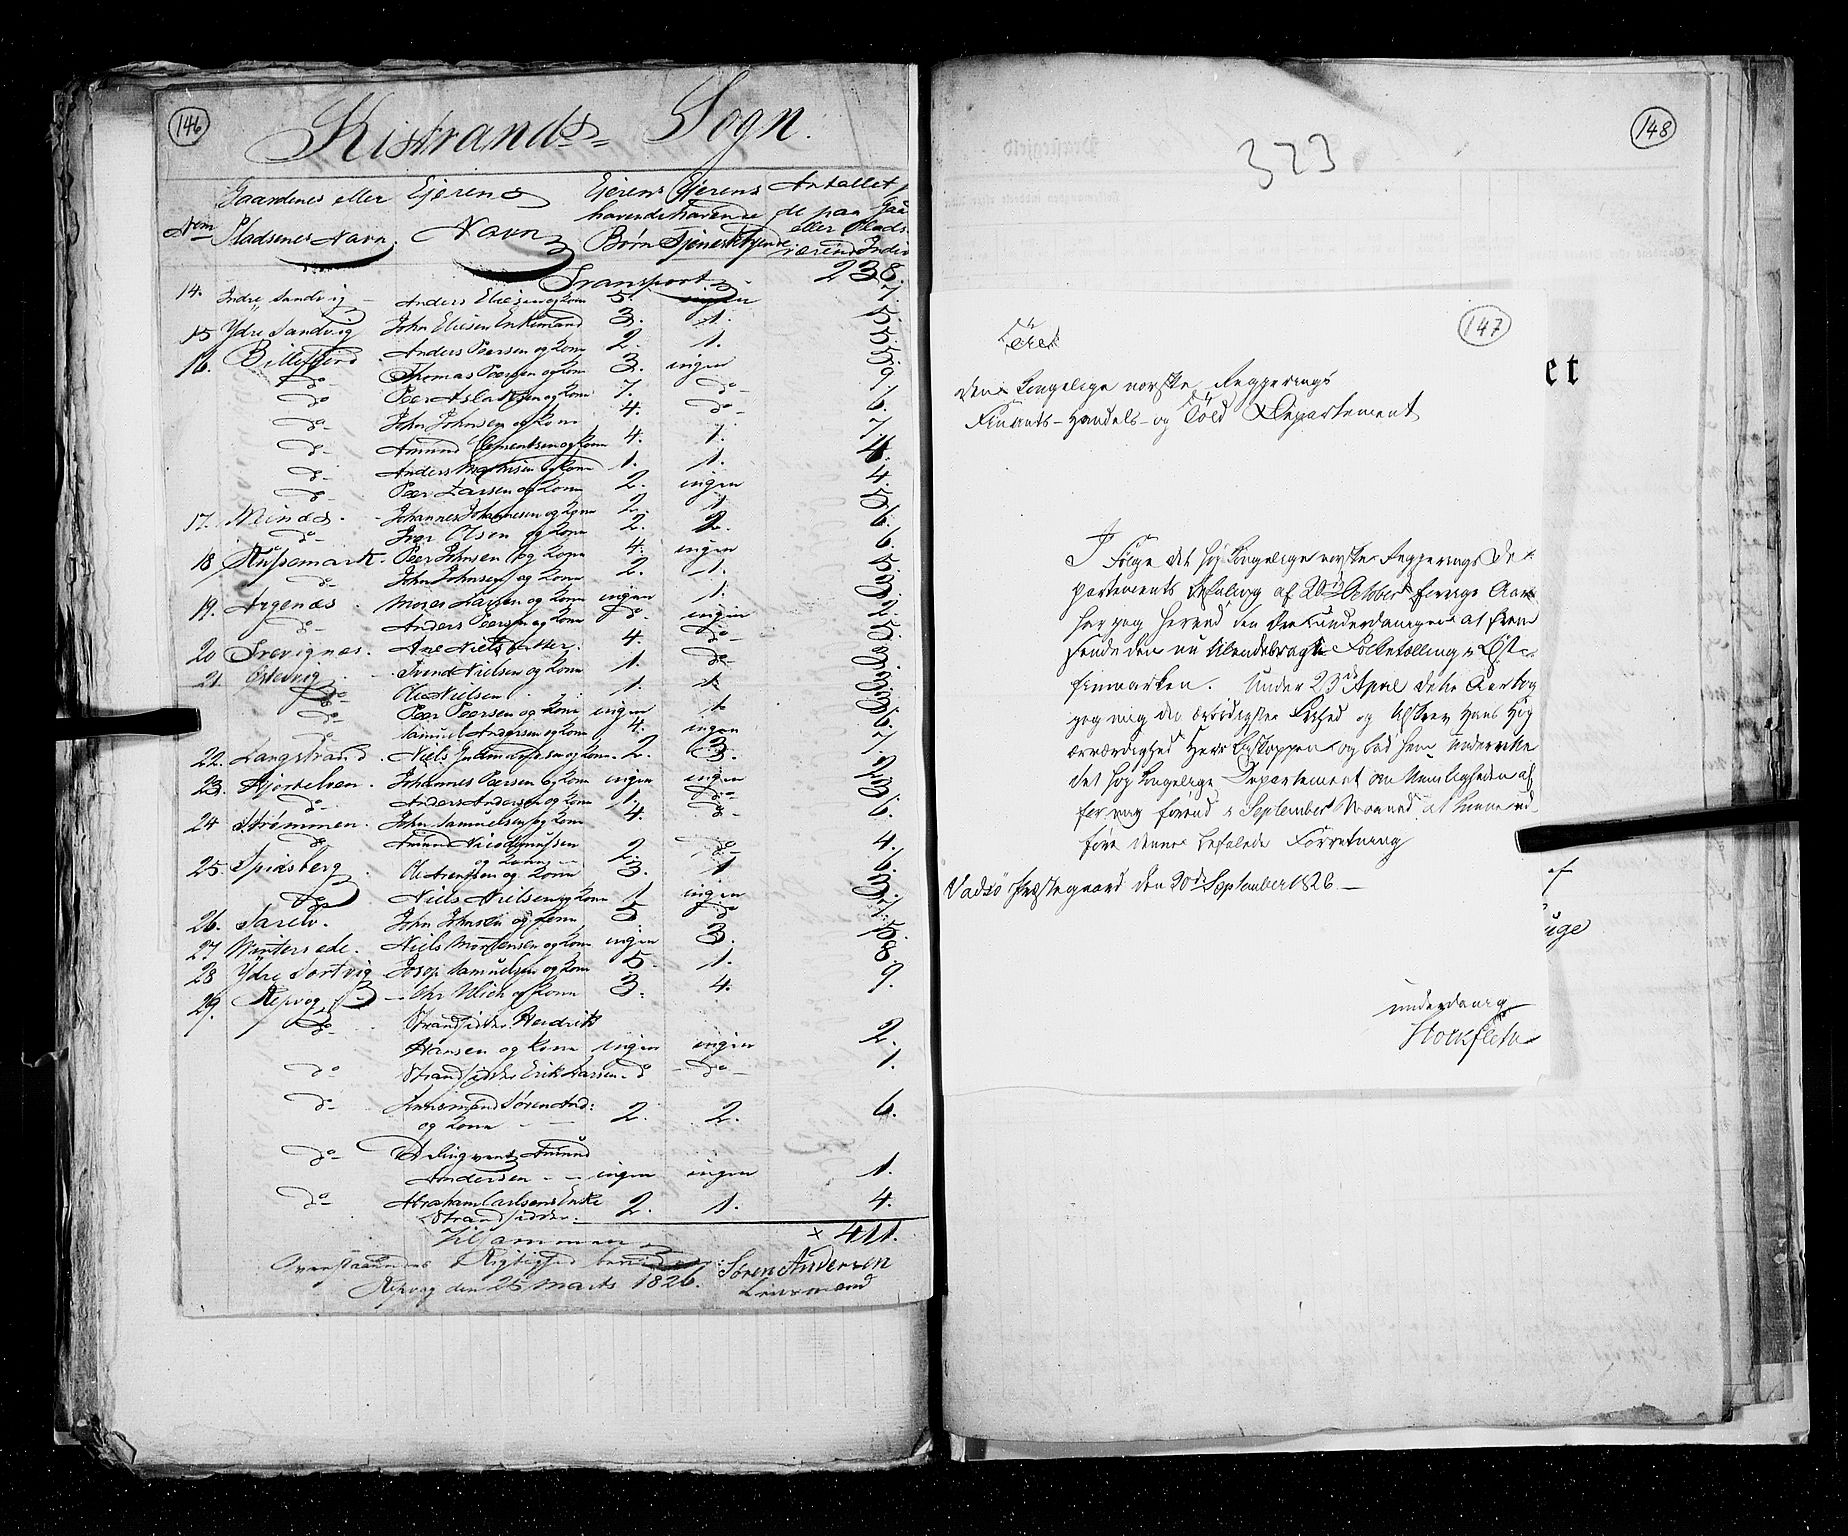 146
Kistrands Sogn.
Num Gaardenes eller Pladsenes Navn. Ejerens Navn Ejerens havende Børn Ejerens havende Tjenestetyende Antallet de paa Gaa eller Plads værende Indiv
Transport 238.
14. Indre Sandvig Anders Eliesen og Kone 5. ingen 7.
15 Ydre Sandvig John Eliesen Enkemand 3. 1. 5.
16. Billefjord Anders Peersen og Kone 2. 1. 5.
do Thomas Peersen og Kone 3. ingen 5.
do Peer Aslaksen og Kone 7. do 9.
do John Johnsen og Kone 4. do 6.
do Amund Clementsen og Kone 4. 1. 7.
do Anders Mathisen og Kone 1. 1. 4.
do Peer Larsen og Kone 2. ingen 4.
17. Mcinæs. Johannes Johannesen og Kone 2. 1 5.
do Iver Olsen og Kone 2. 2. 6.
18 Peer Johnsen og Kone 4. ingen 6.
do John Johnsen og Kone 2. 1. 5.
19. Argenæs Moses Larsen og Kone ingen 1. 3.
do Anders Peersen og Kone do. ingen 2.
20 Svevignæs. Ane Nielsdatter. 4. do 5.
21 Østervig Svend Nielsen og Kone 1. do 3.
do Ole Nielsen 1. 1.
do Peer Peersen og Kone ingen 1 3.
do Samuel Andersen og Kone 4. ingen 6.
22. Langstrand Niels og Kone. 2. 3. 7.
23. Hjortelven. Johannes Peersen og Kone ingen ingen 2.
do Anders Andersen og Kone 1. do 3.
24 Strømmen. John Samuelsen og Kone 4. do 6.
do Amund Nicodemussen og Kone 2. do 4.
25. Spidsberg Ole Arentsen og Kone 3. 1 6.
do Niels Nielsen og Kone 1 ingen 3.
26. Sarelv. John Johnsen og Kone 5 do 7.
27 Wintersede. Niels Mortensen og Kone ingen 3. 5.
28 Ydre Sortvig Josep Samuelsen og Kone 5. 1. 8.
29. Repvog Ulich og Kone 3. 4. 9.
do Strandsidder Hendrik
Hansen og Kone ingen ingen 2.
do Strandsidder Erik Larsen do do 1.
do Søren And:
og Kone 2. 2. 6.
do Amund
Andersen ingen ingen 1.
do Abraham Carlsens Enke
Strandsidder 2. 1. 4.
Tilsammen × 411.
Ovenstaaendes Rigtighed bevidner
Repvog den 25 Marts 1826. Søren Andersen
Lensmand
323
148
147
Til
den Kongelige norske Regjerings
Finants-Handels-og Told Departement
I Følge det høi Kongelige norske Regjerings De-
partements Befaling af 20de October forrige Aar
har jeg herved den Ære underdanigen at frem
sende den nu tilendebragte Folketælling i Øst-
finmarken. Under 23de April dette Aar tog
jeg mig den ærbødigste Frihed og tilskrev Hans Høi
ærværdighed Herr Biskoppen og bad ham underrette
det høi Kongelige Departement om Umuligheden af
for mig forend i September Maaned at kunne ud-
føre denne befalede Forretning
Vadsø Præstegaard den 30de September 1826 —
underdanig
Stockfleth
et
af
uge